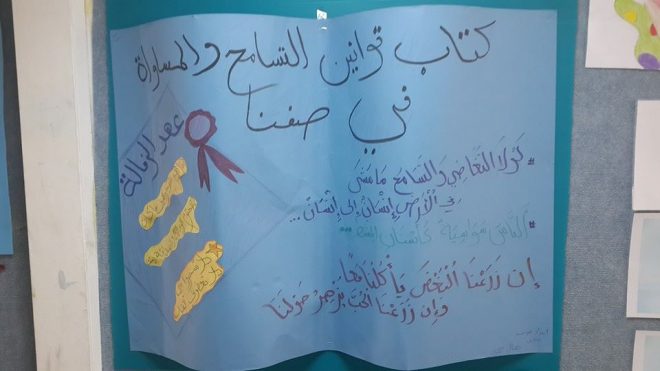 كتاب قوانين التسامح والمساواة
في صفنا
عهد الزمالة
# لَولَا التَّغَاضِي وَالتَّسَامُح مَا مَشَى
فِي الْأَرْضِ إِنْسَانٌ إِلَى إِنْسَانٍ...
# النَّاسُ سَوَاسِيَةٌ كَأَسْنَانِ المشط ...
إِن زَرَعْنَا الْبُغْضَ يَأْكُلْنَا مَعًا
وَإِن زَرَعْنَا الحُبَّ يُزْهِرْ حَوْلَنَا